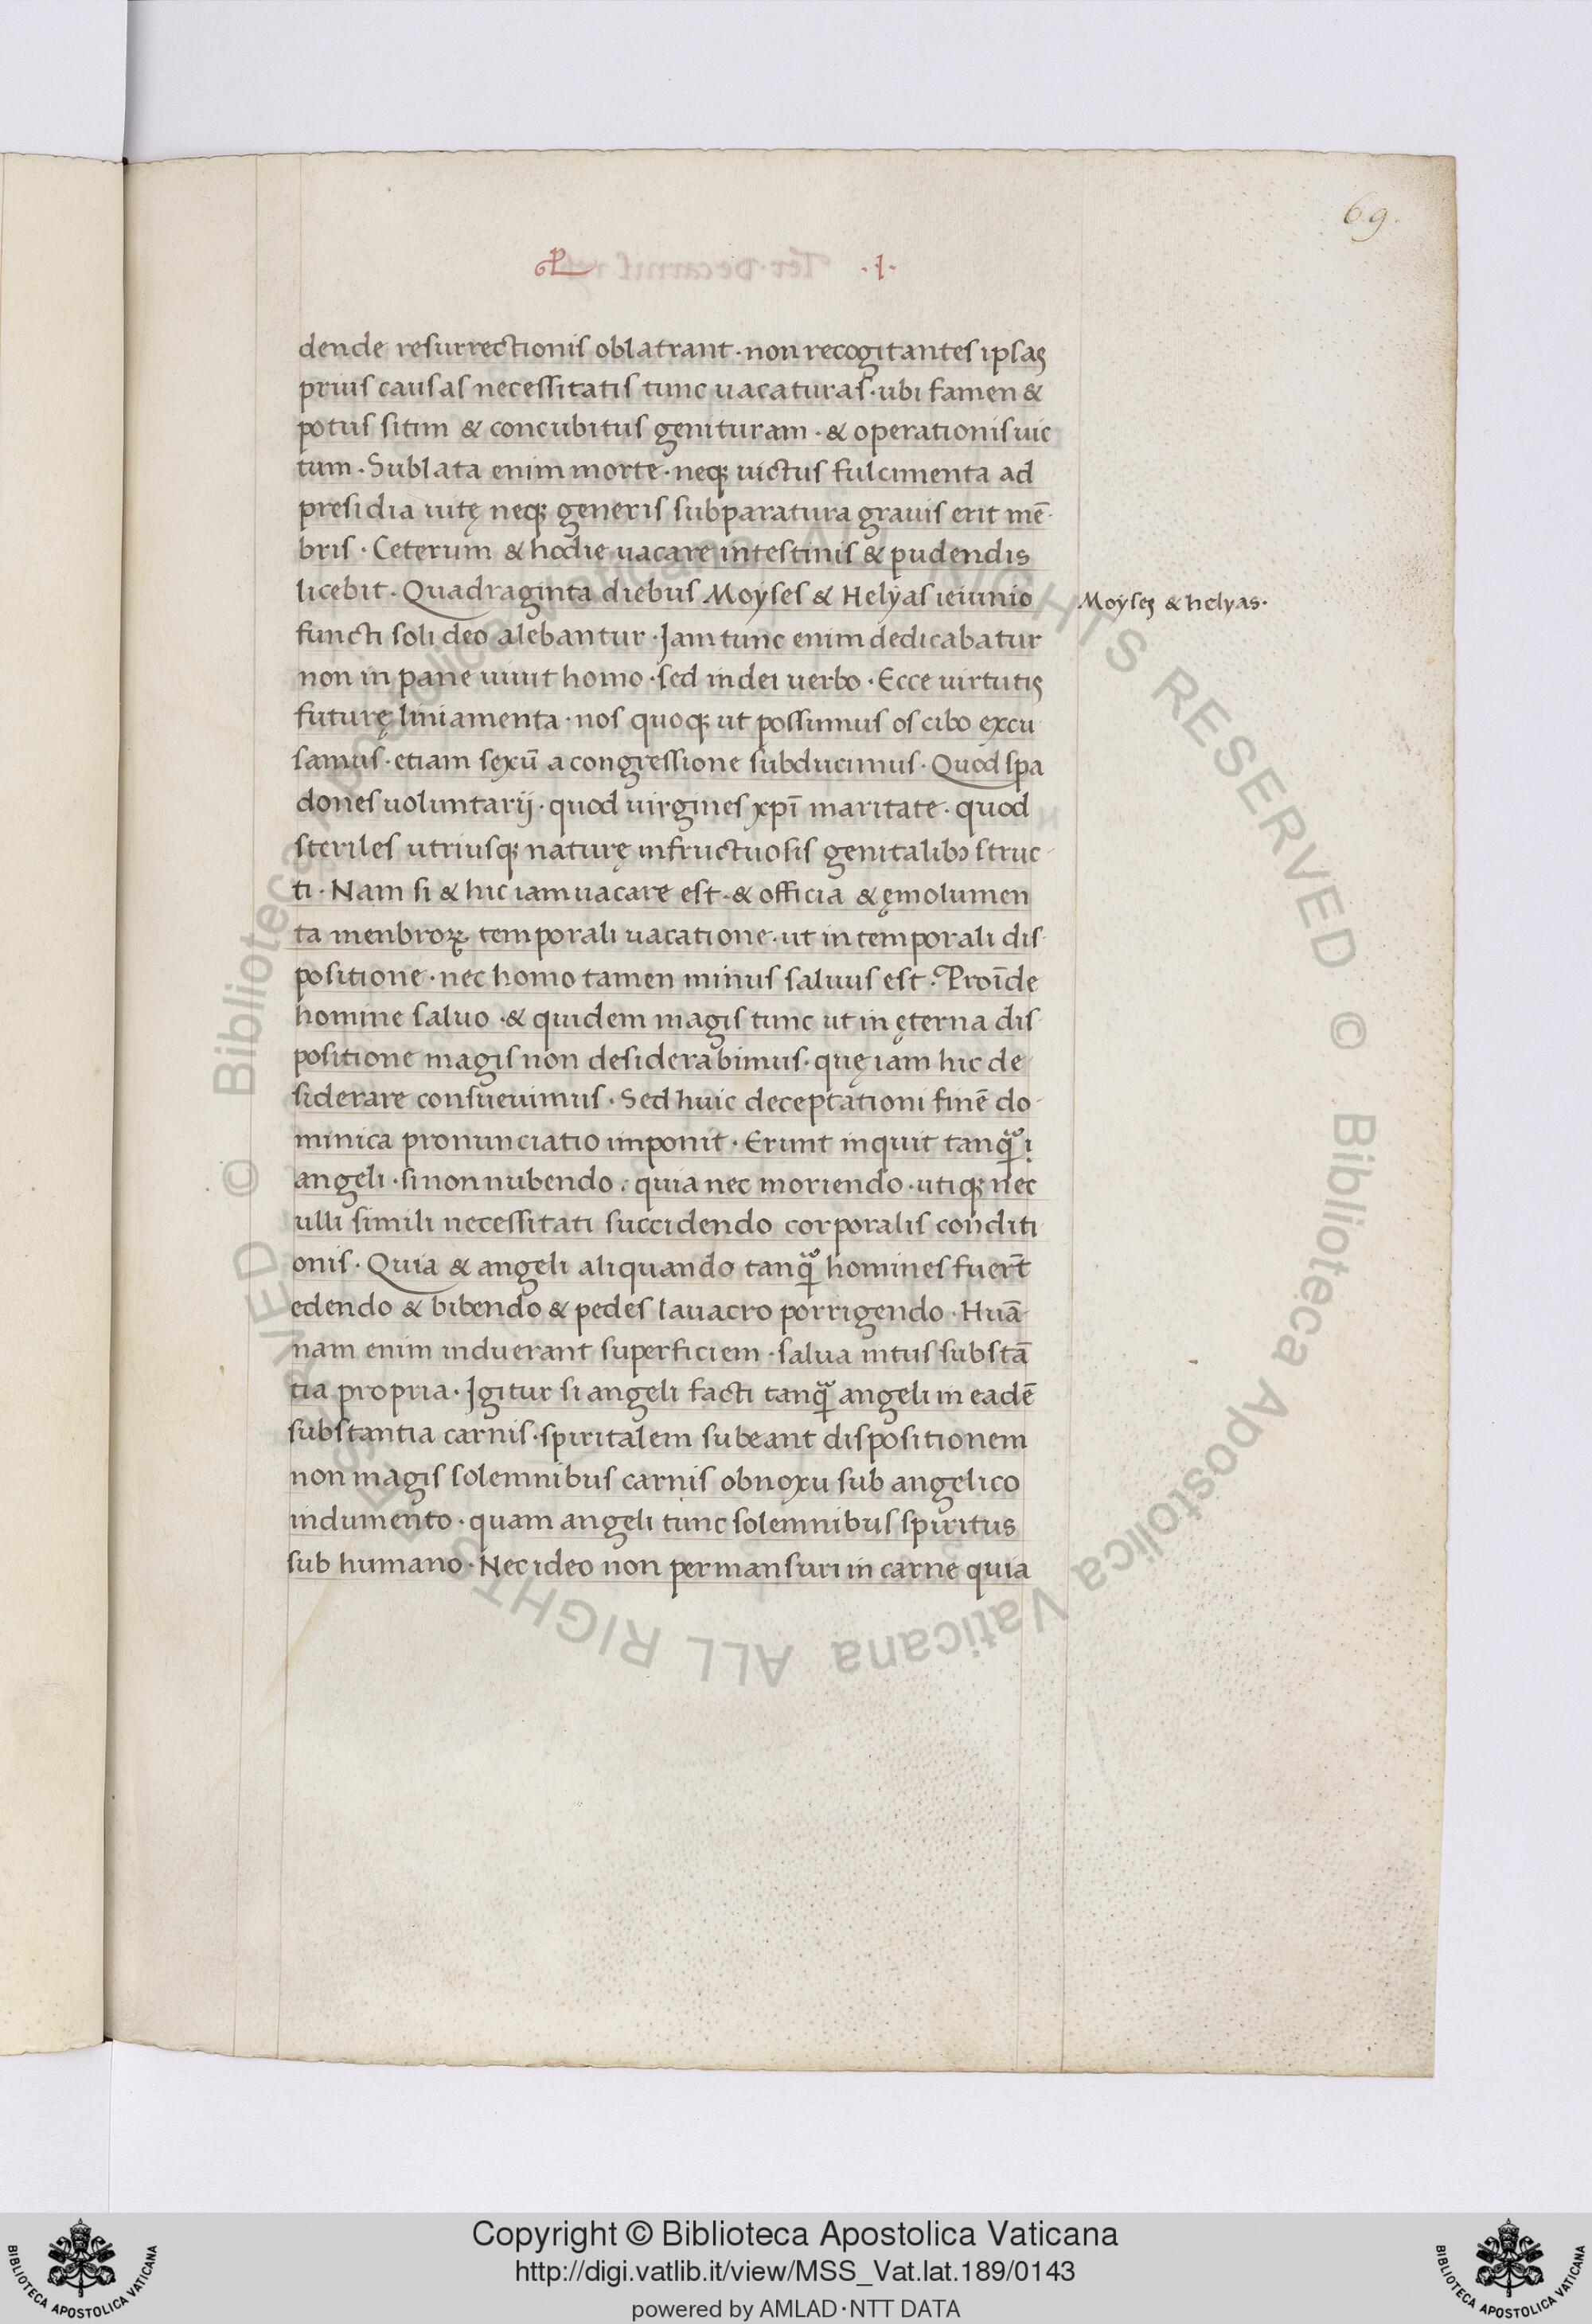 69.
·I·
dende resurrectionis oblatrant · non recogitantes ipsas
prius causas necessitatis tunc uacaturas · ubi famen &
potus sitim & concubitus genituram · & operationis uic
tum · Sublata enim morte · neqꝫ uictus fulcimenta ad
presidia uitę neqꝫ generis subparatura grauis erit mē-
bris · Ceterum & hodie uacare intestinis & pudendis
licebit · Quadraginta diebus Moyses & Helyas ieiunio
Moyses & helyas ·
functi soli deo alebantur · Jam tunc enim dedicabatur
non in pane uiuit homo · sed in dei uerbo · Ecce uirtutis
futurę liniamenta · nos quoqꝫ ut possumus os cibo excu
samus · etiam sexū a congressione subducimus · Quod spa
dones uoluntarij · quod uirgines xp̄i maritate · quod
steriles utriusqꝫ naturę infructuosis genitalibꝫ struc-
ti · Nam si & hic iam uacare est · & officia & ęmolumen
ta menbroꝝ temporali uacatione · ut in temporali dis-
positione · nec homo tamen minus saluus est · Proīde
homine saluo · & quidem magis tunc ut in ęterna dis-
positione magis non desiderabimus · quę iam hic de
siderare consueuimus · Sed huic deceptationi finē do-
minica pronunciatio imponit · Erunt inquit tanqͣ
angeli · si non nubendo · quia nec moriendo · utiqꝫ nec
ulli simili necessitati succidendo corporalis conditi
onis · Quia & angeli aliquando tanqͣ homines fuert̄
edendo & bibendo & pedes lauacro porrigendo · Huā-
nam enim induerant superficiem · salua intus substā
tia propria · Jgitur si angeli facti tanqͣ angeli in eadē
substantia carnis · spiritalem subeant dispositionem
non magis solemnibus carnis obnoxii sub angelico
indumento · quam angeli tunc solemnibus spiritus
sub humano · Nec ideo non permansuri in carne quia
© Biblioteca Apostolica Vaticana ALL RIGHTS RESERVED © Biblioteca Apostolica Vaticana ALL RIGHTS RESERVED
Copyright © Biblioteca Apostolica Vaticana
http://digi.vatlib.it/view/MSS_Vat.lat.189/0143
powered by AMLAD·NTT DATA
BIBLIOTECA APOSTOLICA VATICANA
BIBLIOTECA APOSTOLICA VATICANA